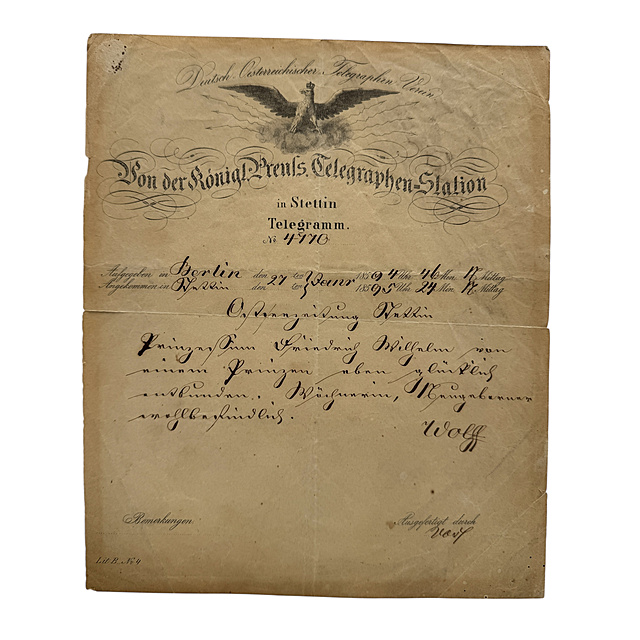 Deutsch-Oesterreichischer Telegraphen-Verein
Von der Königl. Preuss. Telegraphen-Station
in Stettin
Telegramm.
No 4770
Aufgegeben in Berlin den 27 ten Janr 1859 4 Uhr 46 Min N Mittag
Angekommen in Stettin den 27 ten Janr 1859 5 Uhr 24 Min N Mittag
Ostseezeitung Stettin
Prinzessin Friedrich Wilhelm von
einem Prinzen eben glücklich
entbunden. Wöchnerin, Neugeborner
wohlbefindlich.
Wolff
Bemerkungen
Ausgefertigt durch
Lit. B. No 4